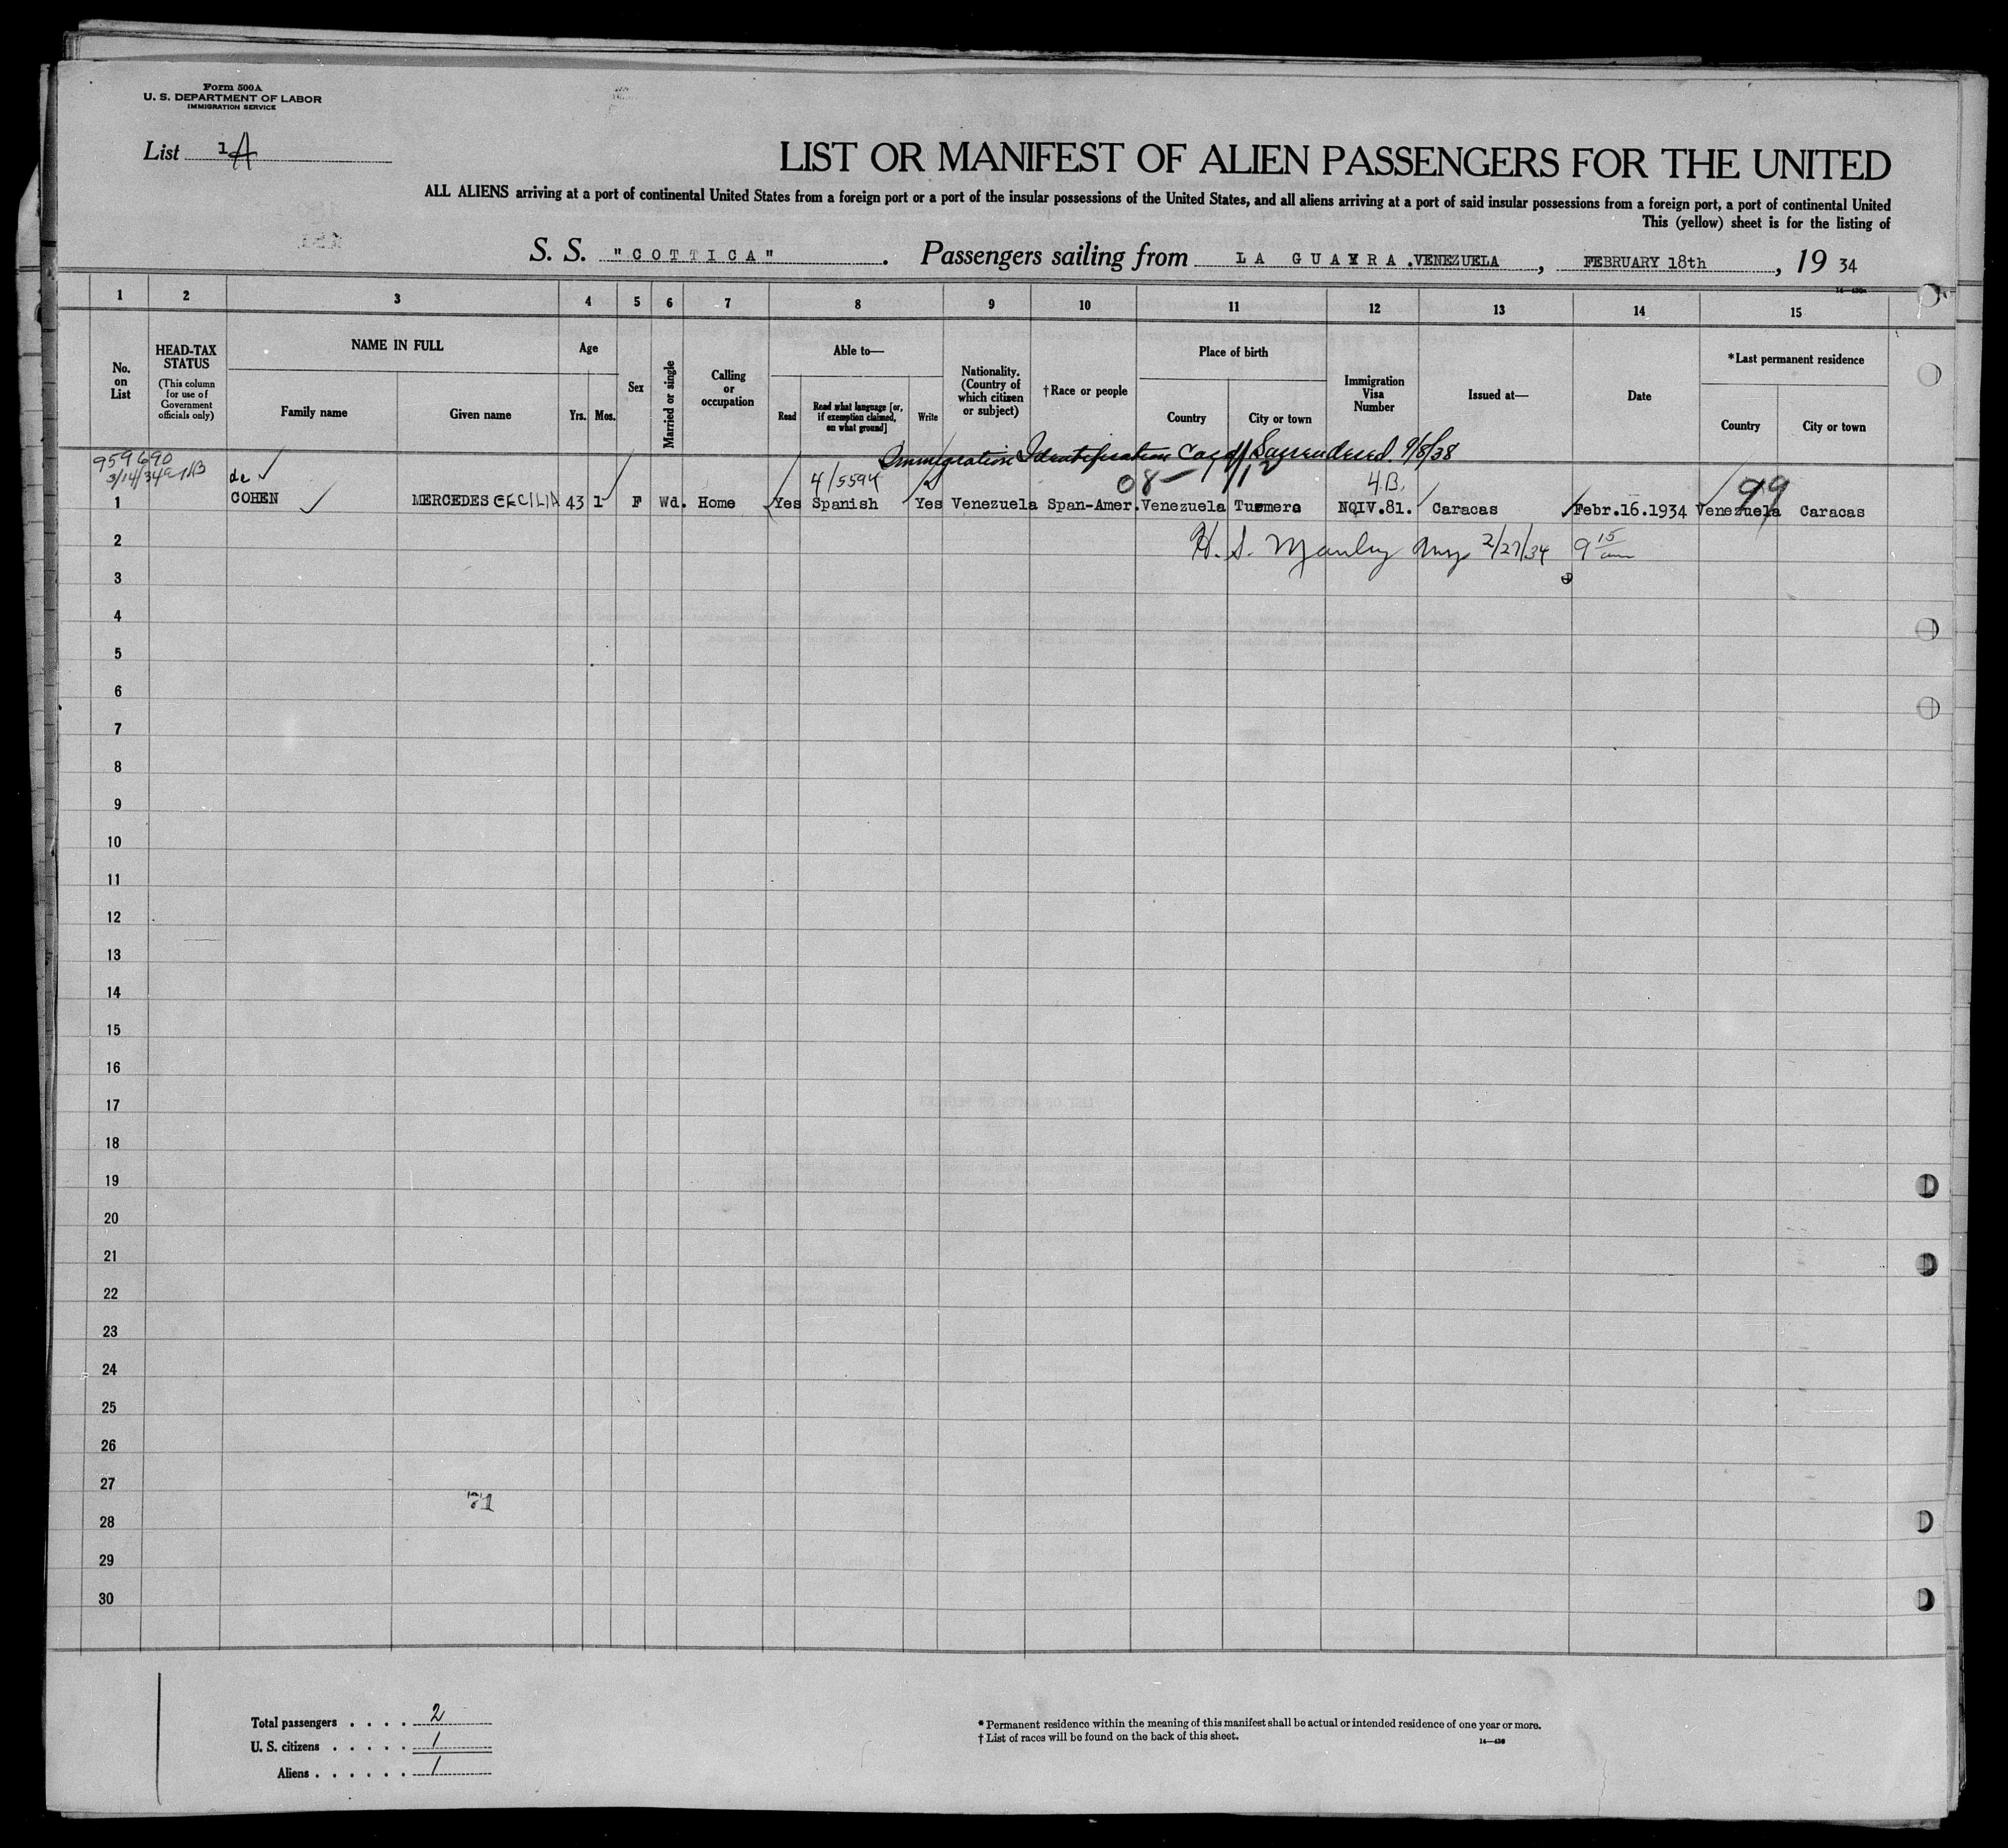 Form 500A
U. S. DEPARTMENT OF LABOR
IMMIGRATION SERVICE
List 1 A
LIST OR MANIFEST OF ALIEN PASSENGERS FOR THE UNITED
ALL ALIENS arriving at a port of continental United States from a foreign port or a port of the insular possessions of the United States, and all aliens arriving at a port of said insular possessions from a foreign port, a port of continental United
This (yellow) sheet is for the listing of
S. S. "COTTICA" . Passengers sailing from LA GUAYRA.VENEZUELA , FEBRUARY 18th , 19 34
1 2 3 4 5 6 7 8 9 10 11 12 13 14 15
No. on List
HEAD-TAX STATUS
(This column for use of Government officials only)
NAME IN FULL
Family name Given name
Age
Yrs. Mos.
Sex
Married or single
Calling or occupation
Able to—
Read Read what language [or, if exemption claimed, on what ground] Write
Nationality. (Country of which citizen or subject)
†Race or people
Place of birth
Country City or town
Immigration Visa Number
Issued at—
Date
*Last permanent residence
Country City or town
Immigration Identification Card Surrendered 9/8/38
959690
3/14/34
de 4/5594 08- 4B. 99
1 COHEN MERCEDES CECILIA 43 1 F Wd. Home Yes Spanish Yes Venezuela Span-Amer. Venezuela Turmero NQIV.81. Caracas Febr.16.1934 Venezuela Caracas
2 H. S. Manley 2/27/34 9 15 am
3
4
5
6
7
8
9
10
11
12
13
14
15
16
17
18
19
20
21
22
23
24
25
26
27
71
28
29
30
Total passengers . . . . 2
U. S. citizens . . . . . 1
Aliens . . . . . . 1
* Permanent residence within the meaning of this manifest shall be actual or intended residence of one year or more.
† List of races will be found on the back of this sheet.